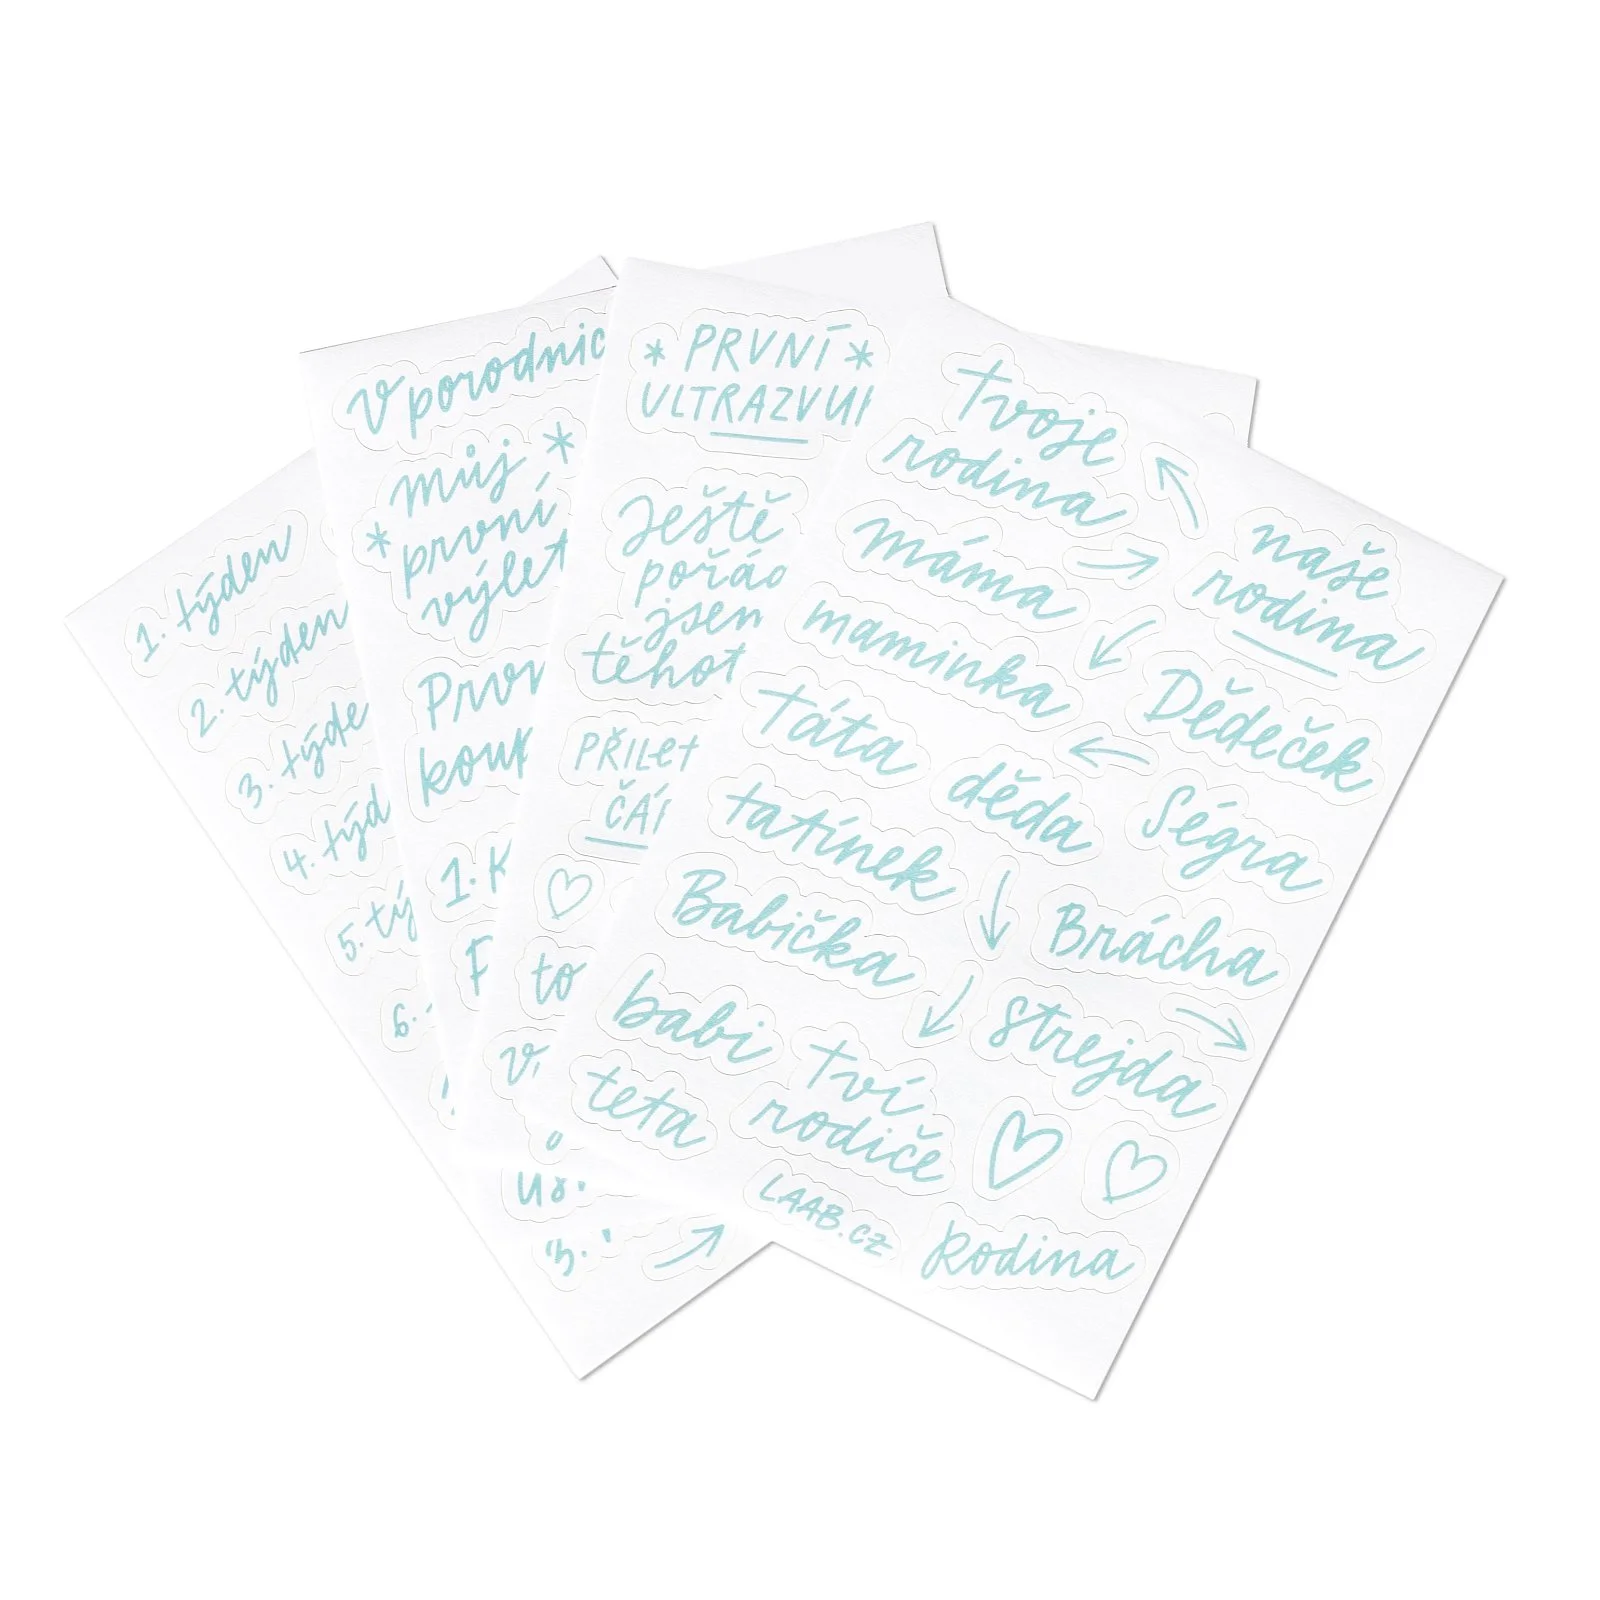 1. týden
2. týden
3. týde
4. týd
5. tý
6.
V porodnic
můj
první
výlet
Prvn
kou
1.
PRVNÍ
ULTRAZVU
Ještě
pořád
jsem
těhot
PŘILET
ČÁP
to
Tvoje
rodina
naše
rodina
máma
maminka
Dědeček
Táta
děda
Ségra
tatínek
Babička
Brácha
babi
strejda
teta
Tví
rodiče
LAAB.CZ
Rodina